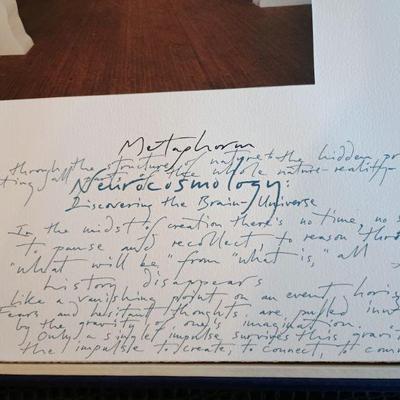 Metaphorm
through the structure of nature & the hidden pr
ting all parts of the whole nature-reality-
Neurocosmology:
Discovering the Brain-Universe
In the midst of creation there's no time, no s
to pause and recollect, to reason thro
"what will be," from "what is," all
history disappears
Like a vanishing point, on an event horiz
fears and hesitant thoughts are pulled inwa
by the gravity of one's imagination.
Only a single impulse survives this gravit
the impulse to create, to connect, to comm